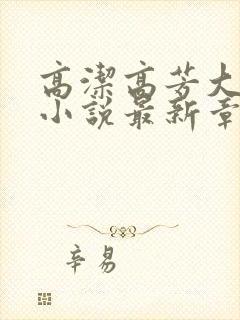 高潔高芳大
小說最新章
辛易